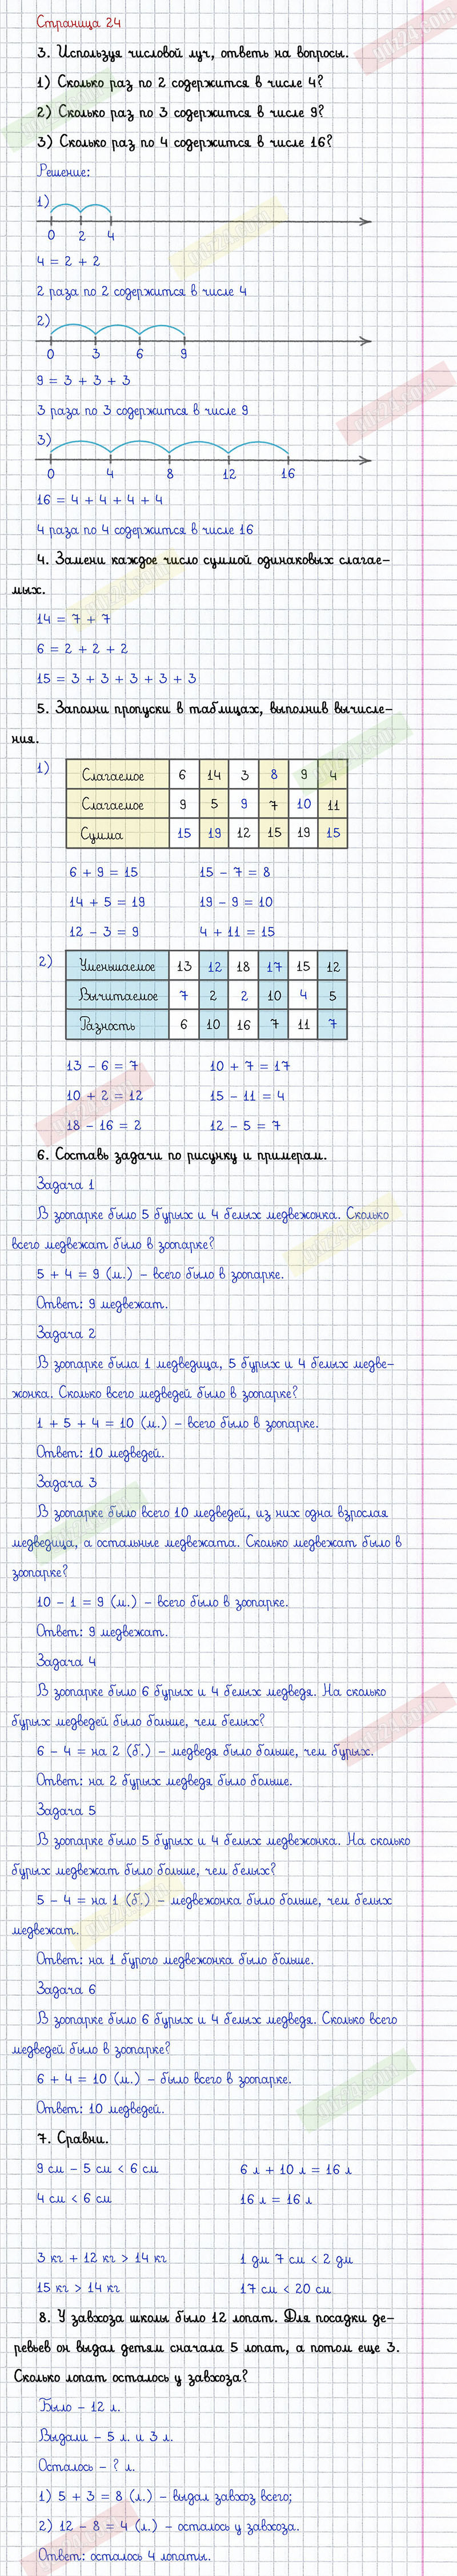 Страница 24
3. Используя числовой луч, ответь на вопросы.
1) Сколько раз по 2 содержится в числе 4?
2) Сколько раз по 3 содержится в числе 9?
3) Сколько раз по 4 содержится в числе 16?
Решение:
1)
0 2 4
4 = 2 + 2
2 раза по 2 содержится в числе 4
2)
0 3 6 9
9 = 3 + 3 + 3
3 раза по 3 содержится в числе 9
3)
0 4 8 12 16
16 = 4 + 4 + 4 + 4
4 раза по 4 содержится в числе 16
4. Замени каждое число суммой одинаковых слагае-
мых.
14 = 7 + 7
6 = 2 + 2 + 2
15 = 3 + 3 + 3 + 3 + 3
5. Заполни пропуски в таблицах, выполнив вычисле-
ния.
1)
Слагаемое 6 14 3 8 9 4
Слагаемое 9 5 9 7 10 11
Сумма 15 19 12 15 19 15
6 + 9 = 15 15 - 7 = 8
14 + 5 = 19 19 - 9 = 10
12 - 3 = 9 4 + 11 = 15
2)
Уменьшаемое 13 12 18 17 15 12
Вычитаемое 7 2 2 10 4 5
Разность 6 10 16 7 11 7
13 - 6 = 7 10 + 7 = 17
10 + 2 = 12 15 - 11 = 4
18 - 16 = 2 12 - 5 = 7
6. Составь задачи по рисунку и примерам.
Задача 1
В зоопарке было 5 бурых и 4 белых медвежонка. Сколько
всего медвежат было в зоопарке?
5 + 4 = 9 (м.) - всего было в зоопарке.
Ответ: 9 медвежат.
Задача 2
В зоопарке была 1 медведица, 5 бурых и 4 белых медве-
жонка. Сколько всего медведей было в зоопарке?
1 + 5 + 4 = 10 (м.) - всего было в зоопарке.
Ответ: 10 медведей.
Задача 3
В зоопарке было всего 10 медведей, из них одна взрослая
медведица, а остальные медвежата. Сколько медвежат было в
зоопарке?
10 - 1 = 9 (м.) - всего было в зоопарке.
Ответ: 9 медвежат.
Задача 4
В зоопарке было 6 бурых и 4 белых медведя. На сколько
бурых медведей было больше, чем белых?
6 - 4 = на 2 (б.) - медведя было больше, чем бурых.
Ответ: на 2 бурых медведя было больше.
Задача 5
В зоопарке было 5 бурых и 4 белых медвежонка. На сколько
бурых медвежат было больше, чем белых?
5 - 4 = на 1 (б.) - медвежонка было больше, чем белых
медвежат.
Ответ: на 1 бурого медвежонка было больше.
Задача 6
В зоопарке было 6 бурых и 4 белых медведя. Сколько всего
медведей было в зоопарке?
6 + 4 = 10 (м.) - было всего в зоопарке.
Ответ: 10 медведей.
7. Сравни.
9 см - 5 см < 6 см 6 л + 10 л = 16 л
4 см < 6 см 16 л = 16 л
3 кг + 12 кг > 14 кг 1 дм 7 см < 2 дм
15 кг > 14 кг 17 см < 20 см
8. У завхоза школы было 12 лопат. Для посадки де-
ревьев он выдал детям сначала 5 лопат, а потом еще 3.
Сколько лопат осталось у завхоза?
Было - 12 л.
Выдали - 5 л. и 3 л.
Осталось - ? л.
1) 5 + 3 = 8 (л.) - выдал завхоз всего;
2) 12 - 8 = 4 (л.) - осталось у завхоза.
Ответ: осталось 4 лопаты.